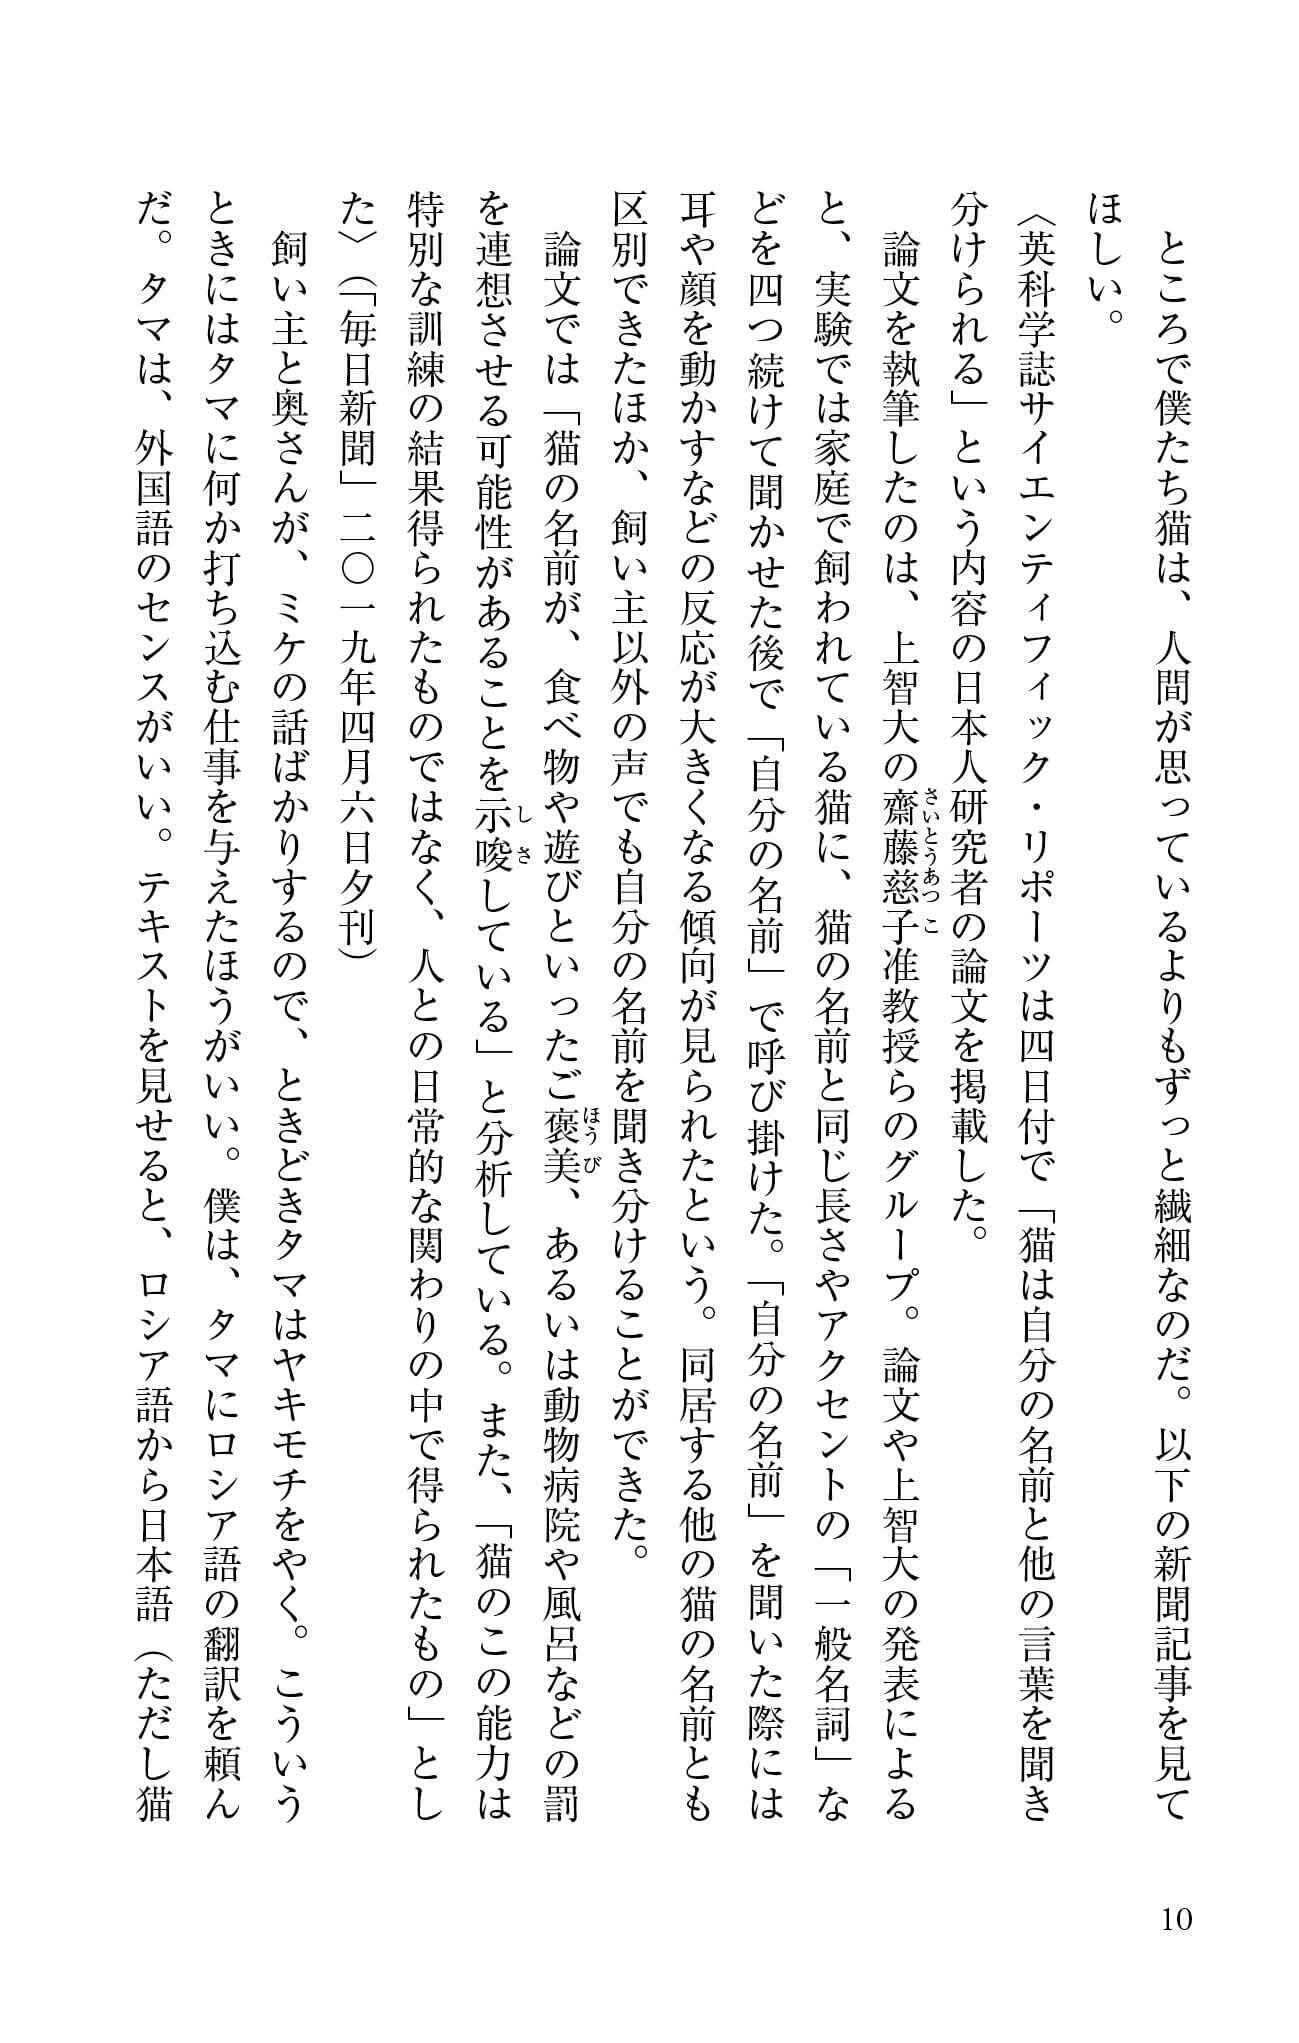 ところで僕たち猫は、人間が思っているよりもずっと繊細なのだ。以下の新聞記事を見て
ほしい。
〈英科学誌サイエンティフィック・リポーツは四日付で「猫は自分の名前と他の言葉を聞き
分けられる」という内容の日本人研究者の論文を掲載した。
　論文を執筆したのは、上智大の齋藤慈子准教授らのグループ。論文や上智大の発表による
さいとうあつこ
と、実験では家庭で飼われている猫に、猫の名前と同じ長さやアクセントの「一般名詞」な
どを四つ続けて聞かせた後で「自分の名前」で呼び掛けた。「自分の名前」を聞いた際には
耳や顔を動かすなどの反応が大きくなる傾向が見られたという。同居する他の猫の名前とも
区別できたほか、飼い主以外の声でも自分の名前を聞き分けることができた。
　論文では「猫の名前が、食べ物や遊びといったご褒美、あるいは動物病院や風呂などの罰
ほうび
を連想させる可能性があることを示唆している」と分析している。また、「猫のこの能力は
しさ
特別な訓練の結果得られたものではなく、人との日常的な関わりの中で得られたもの」とし
た〉（「毎日新聞」二〇一九年四月六日夕刊）
　飼い主と奥さんが、ミケの話ばかりするので、ときどきタマはヤキモチをやく。こういう
ときにはタマに何か打ち込む仕事を与えたほうがいい。僕は、タマにロシア語の翻訳を頼ん
だ。タマは、外国語のセンスがいい。テキストを見せると、ロシア語から日本語（ただし猫
10